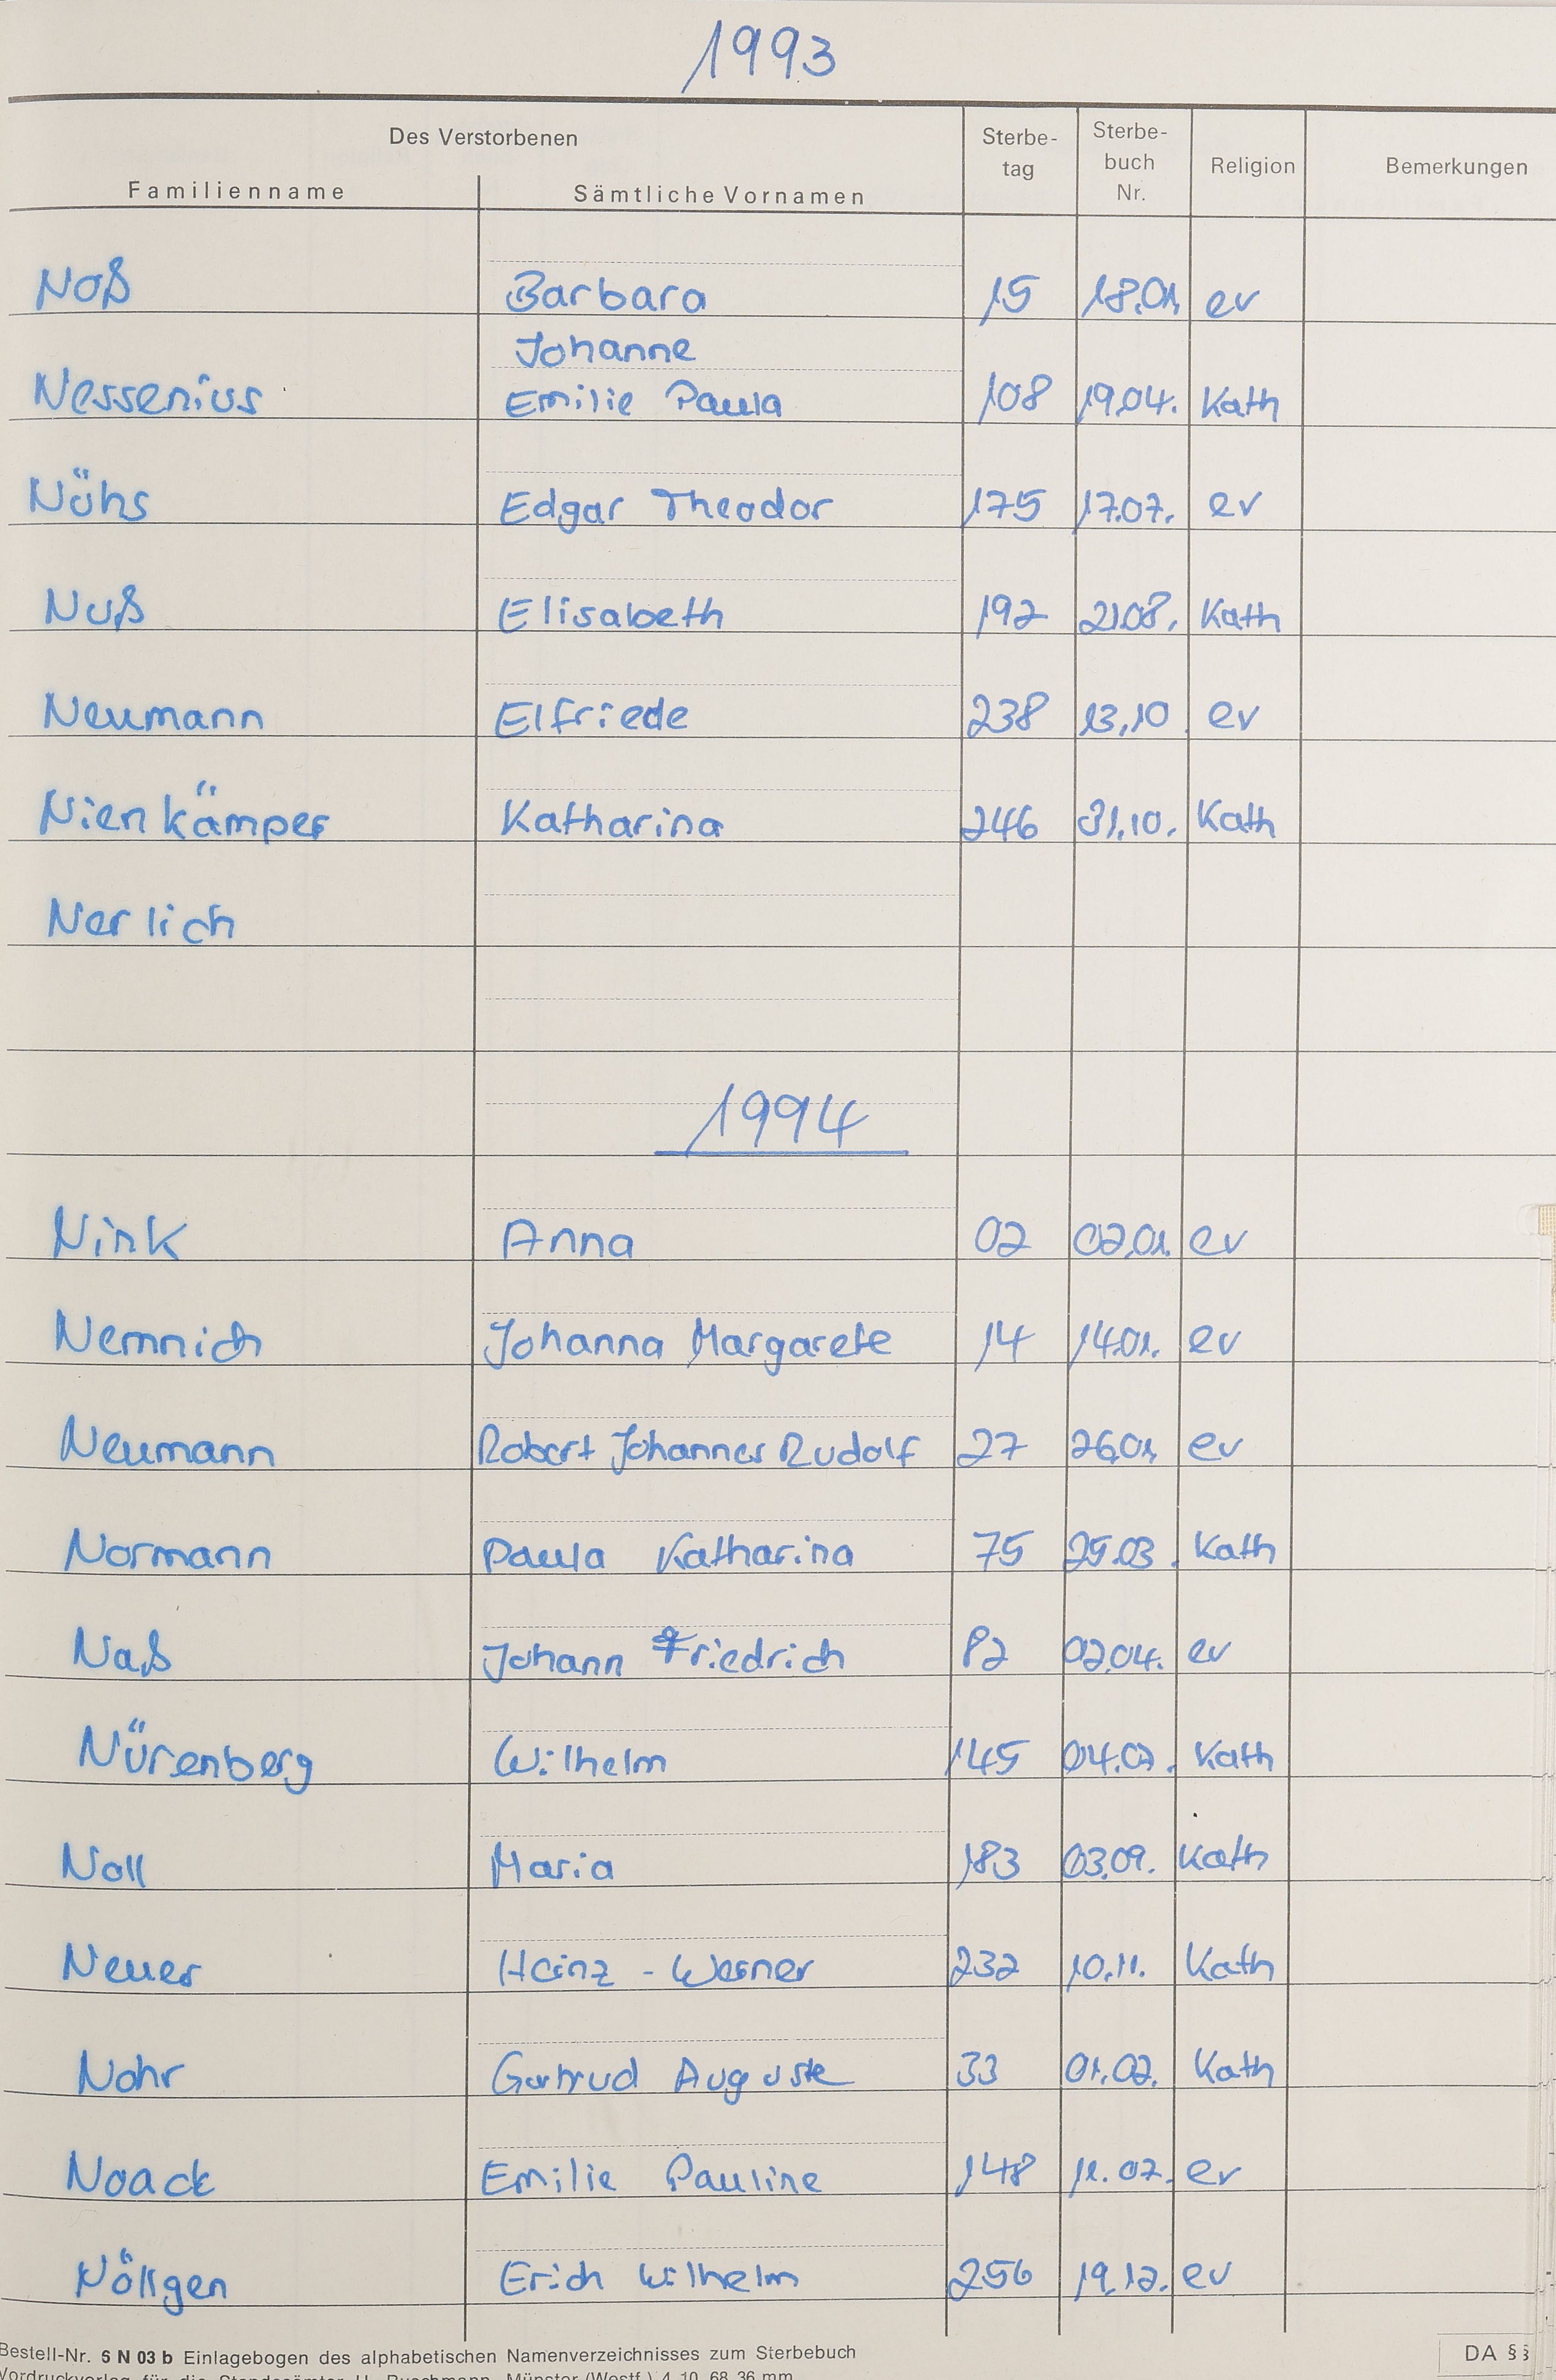 1993
Des Verstorbenen
Familienname Sämtliche Vornamen Sterbe-tag Sterbe-buch Nr. Religion Bemerkungen
Noß Barbara 15 18.01. ev
Johanne
Nessenius Emilie Paula 108 19.04. Kath
Nöhs Edgar Theodor 175 17.07. ev
Nuß Elisabeth 192 21.08. Kath
Neumann Elfriede 238 13.10 ev
Nienkämper Katharina 246 31.10. Kath
Nerlich
1994
Nink Anna 02 02.01. ev
Nemnich Johanna Margarete 14 14.01. ev
Neumann Robert Johannes Rudolf 27 26.01. ev
Normann Paula Katharina 75 25.03. Kath
Naß Johann Friedrich 82 02.04. ev
Nürenberg Wilhelm 145 04.07. Kath
Noll Maria 183 03.09. Kath
Neuer Heinz - Werner 232 10.11. Kath
Nohr Gertrud Auguste 33 01.02. Kath
Noack Emilie Pauline 148 11.07. ev
Nöllgen Erich Wilhelm 256 19.12. ev
Bestell-Nr. S N 03 b Einlagebogen des alphabetischen Namenverzeichnisses zum Sterbebuch DA §§